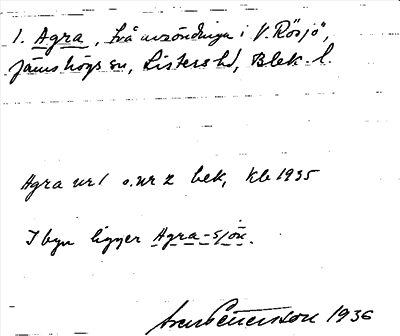 1. Agra, två avsöndringar i V. Rösjö,
Jämshögs sn, Listers hd, Blek. l.
Agra nr 1 o. nr 2 bek, kb 1935
I byn ligger Agra-sjön.
Pettersson 1936